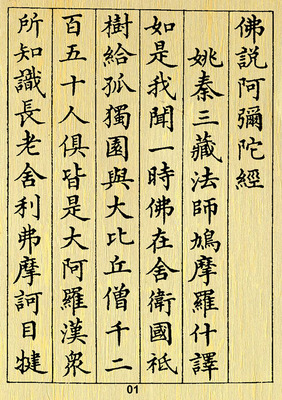 佛説阿彌陀經
姚秦三藏法師鳩摩羅什譯
如是我聞一時佛在舍衛國祇
樹給孤獨園與大比丘僧千二
百五十人俱皆是大阿羅漢衆
所知識長老舍利弗摩訶目犍
01